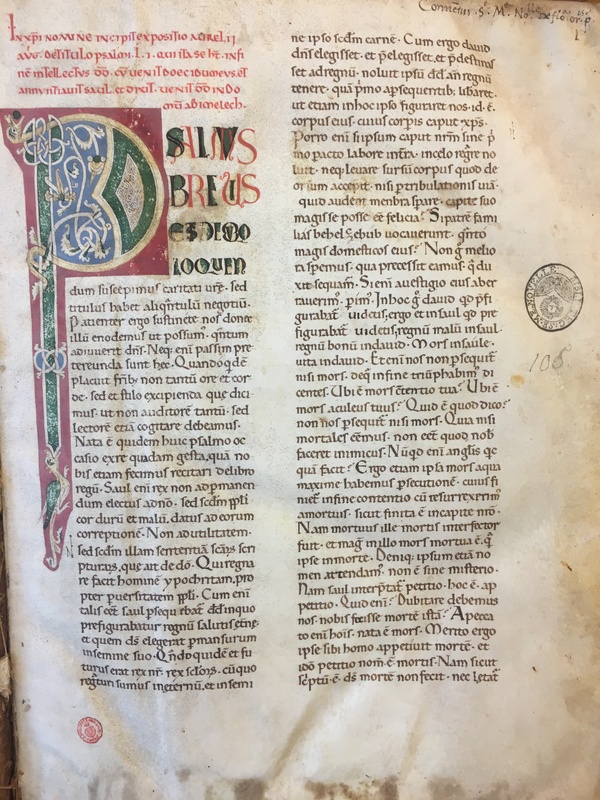 Conventus S. M. No.
IN XPI NOMINE INCIPIT EXPOSITIO AURELII
AUG. DE TITULO PSALMI. L.I. QUI ITA SE HT. IN FI
NE INTELLECTUS DD. CU VENIT DOEC IDUMEUS. ET
ANNUNTIAVIT SAUL. ET DIXIT. VENIT DD IN DO
MU ABIMELECH.
PSALMUS
BREUIS
EST DE QUO
LOQUEN
dum suscepimus caritati ure. sed
titulus habet aliqntulu negotiu.
Patienter ergo sustinete nos donec
illu enodemus ut possum. qntum
adiuuerit dns. Neq; eni passim pre
tereunda sunt hec. Quando qde
placuit frib; non tantu ore et cor
de. sed et stilo excipienda que dici
mus. ut non auditore tantu. sed
lectore etia cogitare debeamus.
Nata e quidem huic psalmo oc
casio ex re quadam gesta, qua no
bis etiam fecimus recitari de libro
regu. Saul eni rex non ad pmanen
dum electus. sed scdm ppli
cor duru et malu. datus ad eorum
correptione. Non ad utilitatem.
sed scdm illam sententia scar scri
pturar, que ait de do. Qui regna
re facit homine ypochritam. pro
pter puersitatem ppli. Cum eni
talis eet saul psequebat. de inquo
prefigurabatur regnu salutis etne.
et quem ds elegerat pmansurum
in semine suo. Qndo quide et fu
turus erat rex nr. rex sclor. cu quo
regnaturi sumus in eternu, et in semi
ne ipso scdm carne. Cum ergo dauid
dns elegisset. et pelegisset. et pdestinas
set ad regnu. noluit ipsu dd an regnu
tenere. qua pmo a psequentib; libaret.
ut etiam in hoc ipso figuraret nos. id. e.
corpus eius. cuius corpis caput e xps.
Porro eni si ipsum caput nrm sine p
mo pacto labore in tra. in celo regre no
luit. neq; leuare sursu corpus quod de
orsum accepit. nisi p tribulationis uia.
quid audent menbra sprare. capite suo
magis se posse ee felicia? Si patre fami
lias behelzebub uocauerunt. qnto
magis domesticos eius? Non g melio
ra spemus. qua precessit eamus. q du
xit sequam. Si eni a uestigio eius aber
rauerim. perim. In hoc g dauid qd pfi
gurabat uideus, ergo et in saul qd pre
figurabat uidetis, regnu malu in saul.
regnu bonu in dauid. Mors in saule.
uita in dauid. Et eni nos non psequit
nisi mors. deq; in fine triuphabim di
centes. Ubi e mors ctentio tua? Ubi e
mors aculeus tuus? Quid e quod dico?
non nos psequit nisi mors. Quia nisi
mortales eemus. non eet quod nob
faceret inimicus. Nuqd eni anglis qc
qua facit? Ergo etiam ipsa mors a qua
maxime habemus psecutione. cuius fi
niet in fine contentio cu resurrexerim
a mortuis. sicut finita e in capite nro.
Nam mortuus ille mortis interfector
fuit. et mag in illo mors mortua e. q
ipse in morte. Deniq; ipsum etia no
men attendam. non e sine misterio.
Nam saul interptat petitio. hoc e. ap
petitio. Quid eni? Dubitare debemus
nos nobis fecisse morte ista? A pecca
to eni hois. nata e mors. Merito ergo
ipse sibi homo appetiuit morte. et
ido petitio nom e mortis. Nam sicut
scptu e. ds morte non fecit. nec letat
105